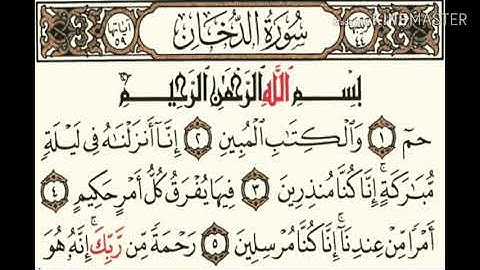 سُورَةُ الدُّخَانِ
بِسْمِ اللَّهِ الرَّحْمَٰنِ الرَّحِيمِ
حمٓ ١ وَالْكِتَابِ الْمُبِينِ ٢ إِنَّآ أَنزَلْنَاهُ فِى لَيْلَةٍ
مُّبَارَكَةٍ ۚ إِنَّا كُنَّا مُنذِرِينَ ٣ فِيهَا يُفْرَقُ كُلُّ أَمْرٍ حَكِيمٍ ٤
أَمْرًا مِّنْ عِندِنَآ ۚ إِنَّا كُنَّا مُرْسِلِينَ ٥ رَحْمَةً مِّن رَّبِّكَ ۚ إِنَّهُۥ هُوَ